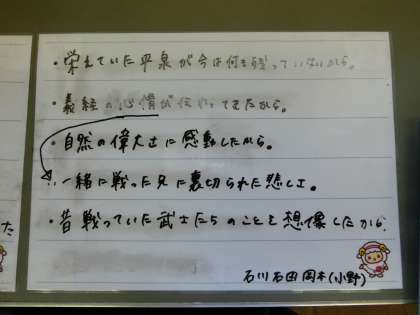 ・栄えていた平泉が今は何も残っていないから。
・義経の心情が伝わってきたから。
・自然の偉大さに感動したから。
一緒に戦った兄に裏切られた悲しさ。
・昔戦っていた武士たちのことを想像したから
石川 石田 岡本(小野)
た